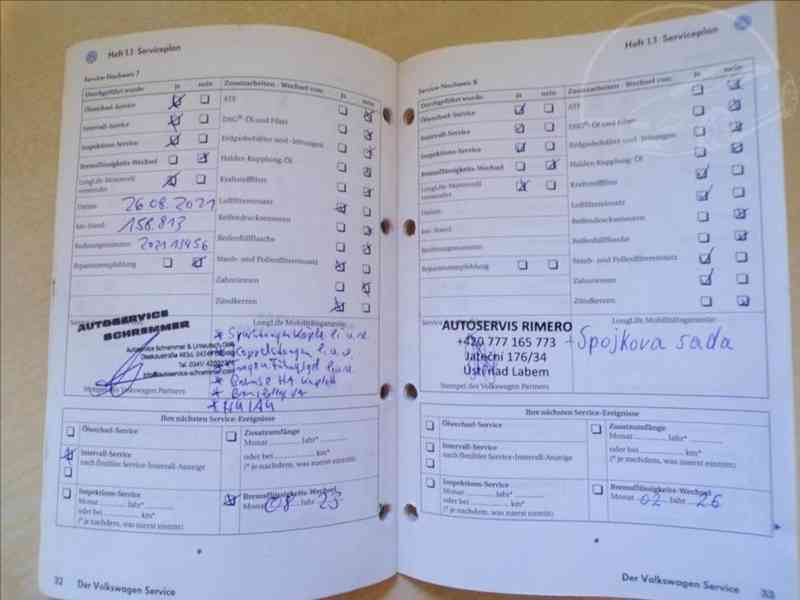 Heft 1.1 Serviceplan
Service-Nachweis 7
Durchgeführt wurde: ja nein
Ölwechsel-Service
Intervall-Service
Inspektions-Service
Bremsflüssigkeits-Wechsel
LongLife-Motorenöl verwendet
Datum 26.08.2021
km-Stand 158.813
Rechnungsnummer 202113456
Reparaturempfehlung
Zusatzarbeiten - Wechsel von: ja nein
ATF
DSG®-Öl und Filter
Erdgasbehälter und -leitungen
Haldex-Kupplung-Öl
Kraftstofffilter
Luftfiltereinsatz
Reifendrucksensoren
Reifenfüllflasche
Staub- und Pollenfiltereinsatz
Zahnriemen
Zündkerzen
LongLife Mobilitätsgarantie
AUTOSERVICE
SCHREMMER
Stempel des Volkswagen Partners
Ihre nächsten Service-Ereignisse
Ölwechsel-Service
Intervall-Service
nach flexibler Service-Intervall-Anzeige
Inspektions-Service
Monat Jahr*
oder bei km*
(* je nachdem, was zuerst eintritt)
Zusatzumfänge
Monat Jahr*
oder bei km*
(* je nachdem, was zuerst eintritt)
Bremsflüssigkeits-Wechsel
Monat 08 Jahr 23
32 Der Volkswagen Service
Heft 1.1 Serviceplan
Service-Nachweis 8
Durchgeführt wurde: ja nein
Ölwechsel-Service
Intervall-Service
Inspektions-Service
Bremsflüssigkeits-Wechsel
LongLife-Motorenöl verwendet
Datum
km-Stand
Rechnungsnummer
Reparaturempfehlung
Zusatzarbeiten - Wechsel von: ja nein
ATF
DSG®-Öl und Filter
Erdgasbehälter und -leitungen
Haldex-Kupplung-Öl
Kraftstofffilter
Luftfiltereinsatz
Reifendrucksensoren
Reifenfüllflasche
Staub- und Pollenfiltereinsatz
Zahnriemen
Zündkerzen
LongLife Mobilitätsgarantie
AUTOSERVIS RIMERO
+420 777 165 773
Jateční 176/34
Ústí nad Labem
+ Spojkova sada
Stempel des Volkswagen Partners
Ihre nächsten Service-Ereignisse
Ölwechsel-Service
Intervall-Service
nach flexibler Service-Intervall-Anzeige
Inspektions-Service
Monat Jahr*
oder bei km*
(* je nachdem, was zuerst eintritt)
Zusatzumfänge
Monat Jahr*
oder bei km*
(* je nachdem, was zuerst eintritt)
Bremsflüssigkeits-Wechsel
Monat 02 Jahr 26
Der Volkswagen Service 33